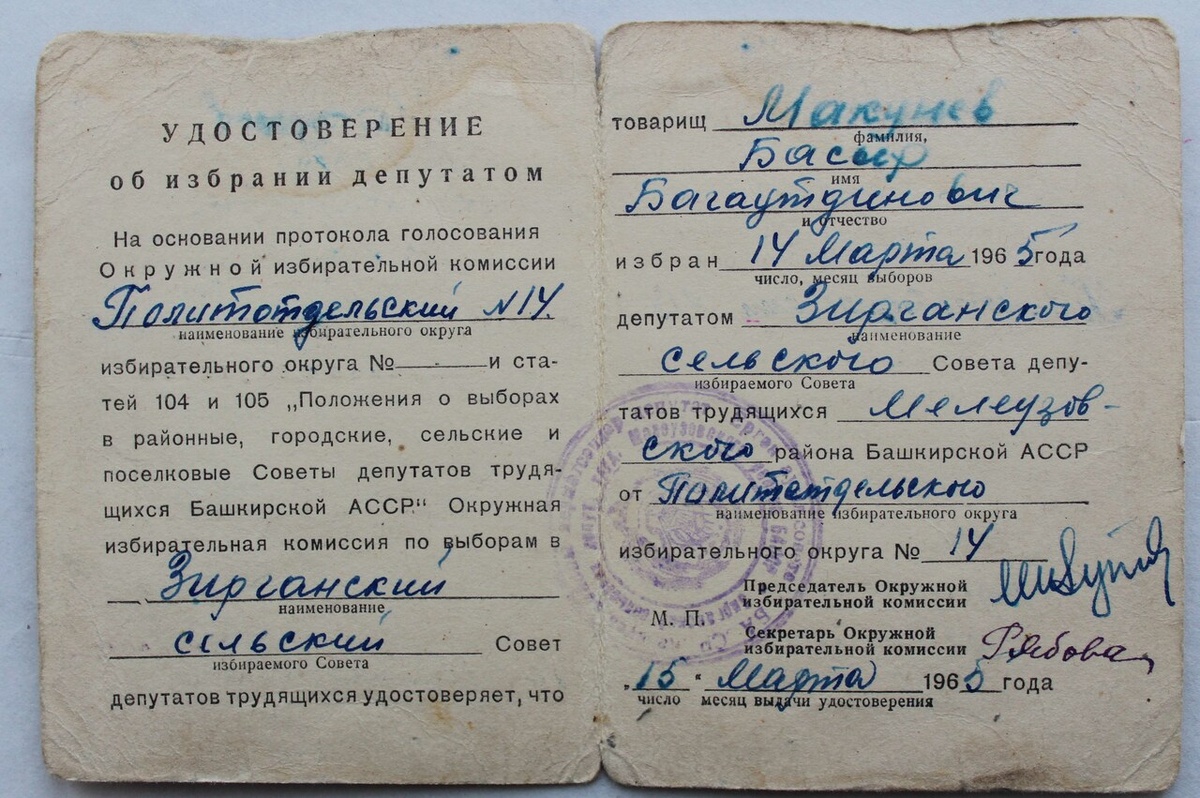 УДОСТОВЕРЕНИЕ
об избрании депутатом
На основании протокола голосования
Окружной избирательной комиссии
Политотдельский №14.
наименование избирательного округа
избирательного округа № — и ста-
тей 104 и 105 „Положения о выборах
в районные, городские, сельские и
поселковые Советы депутатов трудя-
щихся Башкирской АССР“ Окружная
избирательная комиссия по выборам в
Зирганский
наименование
сельский Совет
избираемого Совета
депутатов трудящихся удостоверяет, что
товарищ Макунев
фамилия,
Басыр
имя
Багаутдинович
и отчество
избран 14 Марта 1965 года
число, месяц выборов
депутатом Зирганского
наименование
сельского Совета депу-
избираемого Совета
татов трудящихся Мелеузов-
ского района Башкирской АССР
от Политотдельского
наименование избирательного округа
избирательного округа № 14
Председатель Окружной
избирательной комиссии
М. П.
Секретарь Окружной
избирательной комиссии Рябова
„15“ Марта 1965 года
число месяц выдачи удостоверения